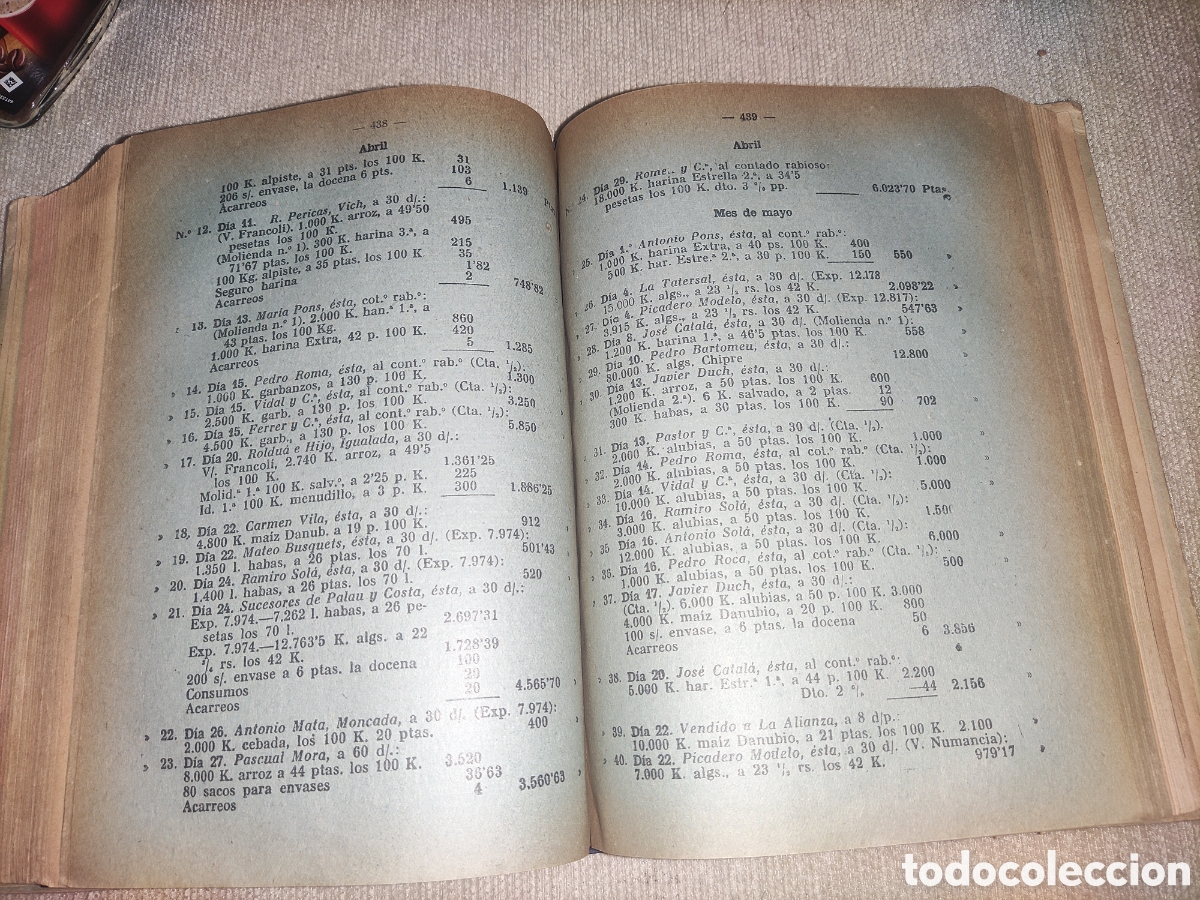 — 438 —
Abril
100 K. alpiste, a 31 pts. los 100 K. 31
206 s/. envase, la docena 6 pts. 103
Acarreos 6 1.139
N.º 12. Día 11. R. Pericas, Vich, a 30 d/.:
(V. Francolí). 1.000 K. arroz, a 49'50
pesetas los 100 K. 495
(Molienda n.º 1). 300 K. harina 3.ª, a
71'67 ptas. los 100 K. 215
100 Kg. alpiste, a 35 ptas. los 100 K. 35
Seguro harina 1'82
Acarreos 2 748'82
13. Día 13. María Pons, ésta, cot.º rab.º:
(Molienda n.º 1). 2.000 K. han.ª 1.ª, a
43 ptas. los 100 Kg. 860
1.000 K. harina Extra, 42 p. 100 K. 420
Acarreos 5 1.285
» 14. Día 15. Pedro Roma, ésta, al cont.º rab.º (Cta. ½):
1.000 K. garbanzos, a 130 p. 100 K. 1.300
» 15. Día 15. Vidal y C.ª, ésta, al cont.º rab.º (Cta. ½):
2.500 K. garb. a 130 p. los 100 K. 3.250
» 16. Día 15. Ferrer y C.ª, ésta, al cont.º rab.º (Cta. ½):
4.500 K. garb., a 130 p. los 100 K. 5.850
» 17. Día 20. Rolduá e Hijo, Igualada, a 30 d/.:
V/. Francolí, 2.740 K. arroz, a 49'5
los 100 K. 1.361'25
Molid.ª 1.ª 100 K. salv.º, a 2'25 p. K. 225
Id. 1.ª 100 K. menudillo, a 3 p. K. 300 1.886'25
» 18. Día 22. Carmen Vila, ésta, a 30 d/.:
4.800 K. maíz Danub. a 19 p. 100 K. 912
» 19. Día 22. Mateo Busquets, ésta, a 30 d/. (Exp. 7.974):
1.350 l. habas, a 26 ptas. los 70 l. 501'43
» 20. Día 24. Ramiro Solá, ésta, a 30 d/. (Exp. 7.974):
1.400 l. habas, a 26 ptas. los 70 l. 520
» 21. Día 24. Sucesores de Palau y Costa, ésta, a 30 d/.:
Exp. 7.974.—7.262 l. habas, a 26 pe-
setas los 70 l. 2.697'31
Exp. 7.974.—12.763'5 K. algs. a 22
³/₄ rs. los 42 K. 1.728'39
200 s/. envase a 6 ptas. la docena 100
Consumos 20
Acarreos 20 4.565'70
» 22. Día 26. Antonio Mata, Moncada, a 30 d/. (Exp. 7.974):
2.000 K. cebada, los 100 K. 20 ptas. 400
» 23. Día 27. Pascual Mora, a 60 d/.:
8.000 K. arroz a 44 ptas. los 100 K. 3.520
80 sacos para envases 36'63
Acarreos 4 3.560'63
— 439 —
Abril
N.º 24. Día 29. Rome.. y C.ª, al contado rabioso:
18.000 K. harina Estrella 2.ª, a 34'5
pesetas los 100 K. dto. 3 % pp. 6.023'70 Ptas.
Mes de mayo
» 25. Día 1.º Antonio Pons, ésta, al cont.º rab.º:
1.000 K. harina Extra, a 40 ps. 100 K. 400
500 K. har. Estre.ª 2.ª, a 30 p. 100 K. 150 550 »
» 26. Día 4. La Tatersal, ésta, a 30 d/. (Exp. 12.178
15.000 K. algs., a 23 ½ rs. los 42 K. 2.098'22 »
» 27. Día 4. Picadero Modelo, ésta, a 30 d/. (Exp. 12.817):
3.915 K. algs., a 23 ½ rs. los 42 K. 547'63 »
» 28. Día 8. José Catalá, ésta, a 30 d/. (Molienda n.º 1):
1.200 K. harina 1.ª, a 46'5 ptas. los 100 K. 558 »
» 29. Día 10. Pedro Bartomeu, ésta, a 30 d/.:
80.000 K. algs. Chipre 12.800 »
» 30. Día 13. Javier Duch, ésta, a 30 d/.:
1.200 K. arroz, a 50 ptas. los 100 K. 600
(Molienda 2.ª). 6 K. salvado, a 2 ptas. 12
300 K. habas, a 30 ptas. los 100 K. 90 702 »
» 31. Día 13. Pastor y C.ª, ésta, a 30 d/. (Cta. ½).
2.000 K. alubias, a 50 ptas. los 100 K. 1.000 »
» 32. Día 14. Pedro Roma, ésta, al cot.º rab.º (Cta. ½):
2.000 K. alnbias, a 50 ptas. los 100 K. 1.000 »
» 33. Día 14. Vidal y C.ª, ésta, a 30 d/. (Cta. ½):
10.000 K. alubias, a 50 ptas. los 100 K. 5.000 »
» 34. Día 16. Ramiro Solá, ésta, a 30 d/. (Cta. ½):
3.000 K. alubias, a 50 ptas. los 100 K. 1.500
» 35 Día 16. Antonio Solá, ésta, a 30 d/. (Cta. ½):
12.000 K. alubias, a 50 ptas. los 100 K. 6.000 »
» 36. Día 16. Pedro Roca, ésta, al cot.º rab.º (Cta. ½):
1.000 K. alubias, a 50 ptas. los 100 K. 500 »
» 37. Día 17. Javier Duch, ésta, a 30 d/.:
(Cta. ½). 6.000 K. alubias, a 50 p. K. 3.000
4.000 K. maíz Danubio, a 20 p. 100 K. 800
100 s/. envase, a 6 ptas. la docena 50
Acarreos 6 3.856 »
» 38. Día 20. José Catalá, ésta, al cont.º rab.º:
5.000 K. har. Estr.ª 1.ª, a 44 p. 100 K. 2.200
Dto. 2 % —44 2.156 »
» 39. Día 22. Vendido a La Alianza, a 8 d/p.:
10.000 K. maíz Danubio, a 21 ptas. los 100 K. 2.100 »
» 40. Día 22. Picadero Modelo, ésta, a 30 d/. (V. Numancia):
7.000 K. algs., a 23 ½ rs. los 42 K. 979'17 »
todocoleccion